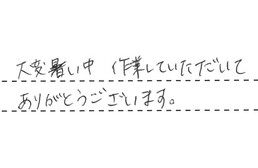 大変暑い中 作業していただいて
ありがとうございます。